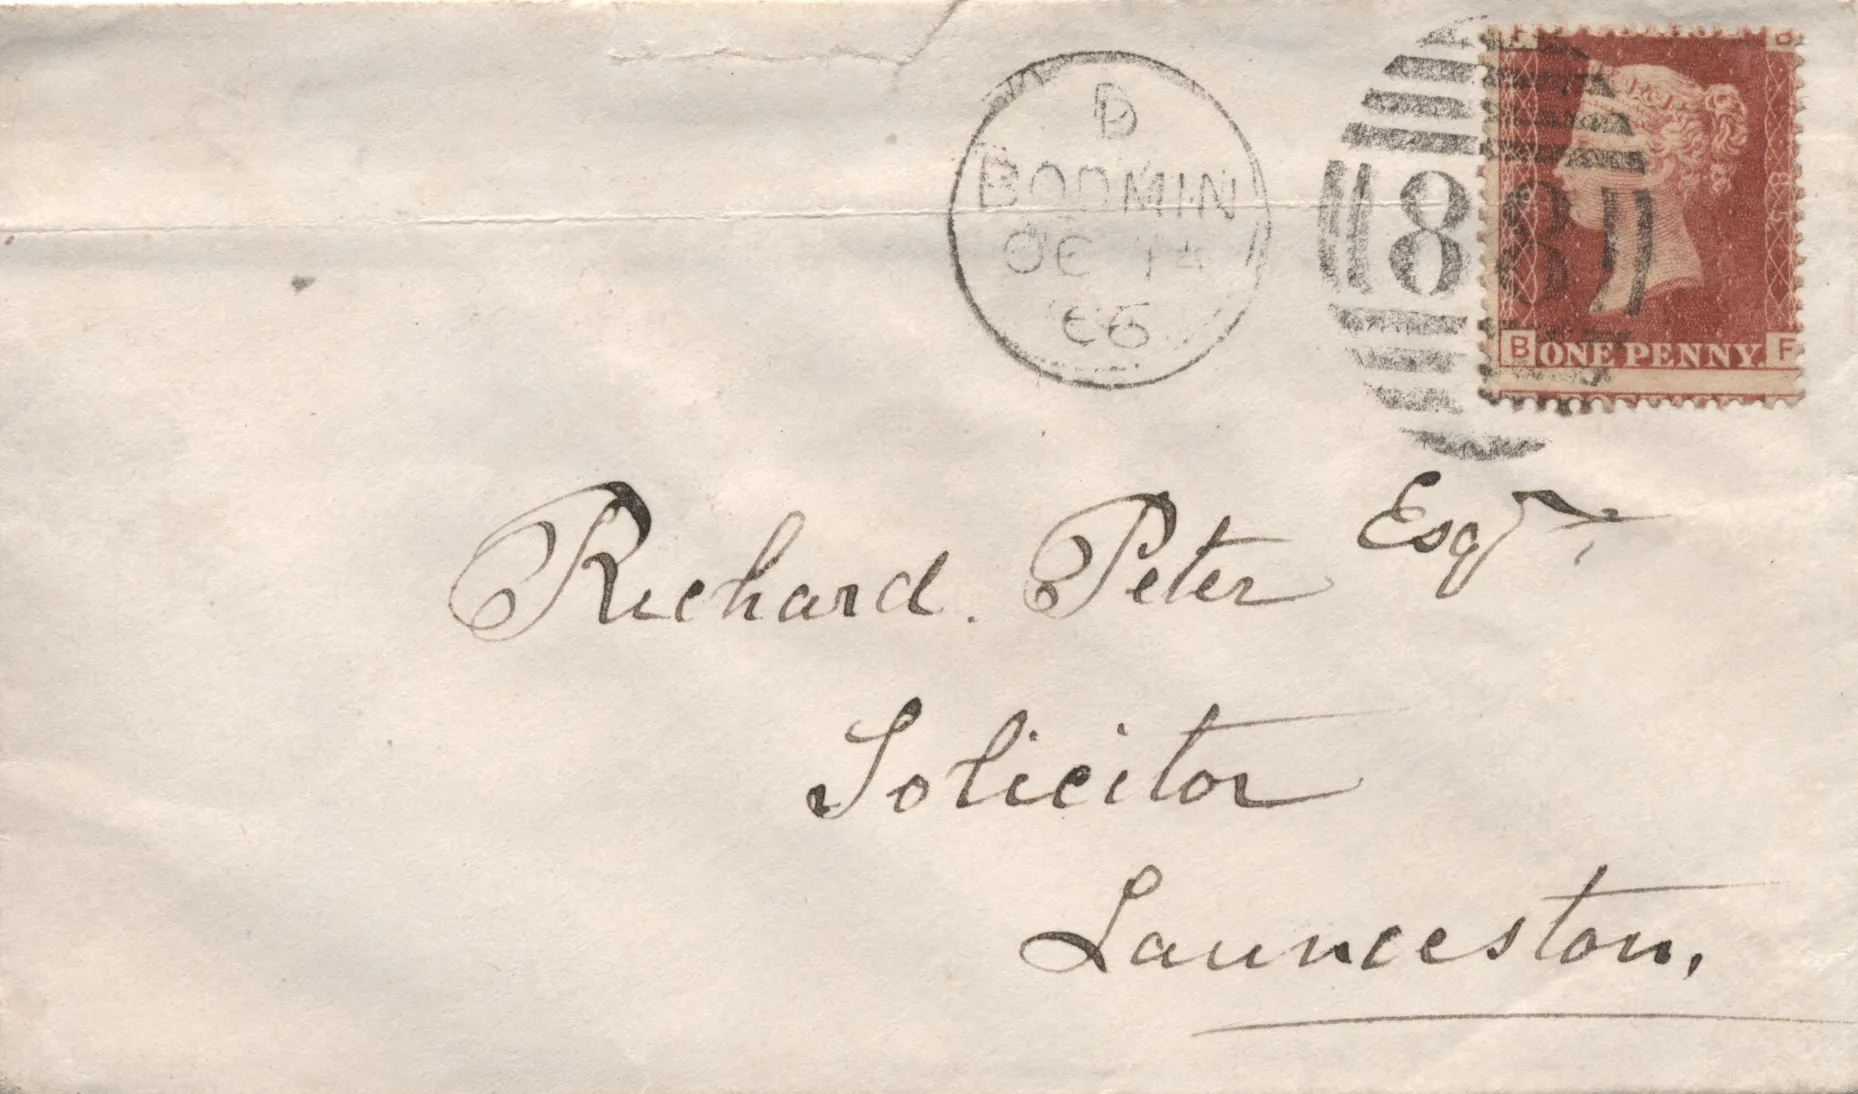 D
BODMIN
OC 14
66
88
B F
ONE PENNY.
Richard. Peter Esqr
Solicitor
Launceston,